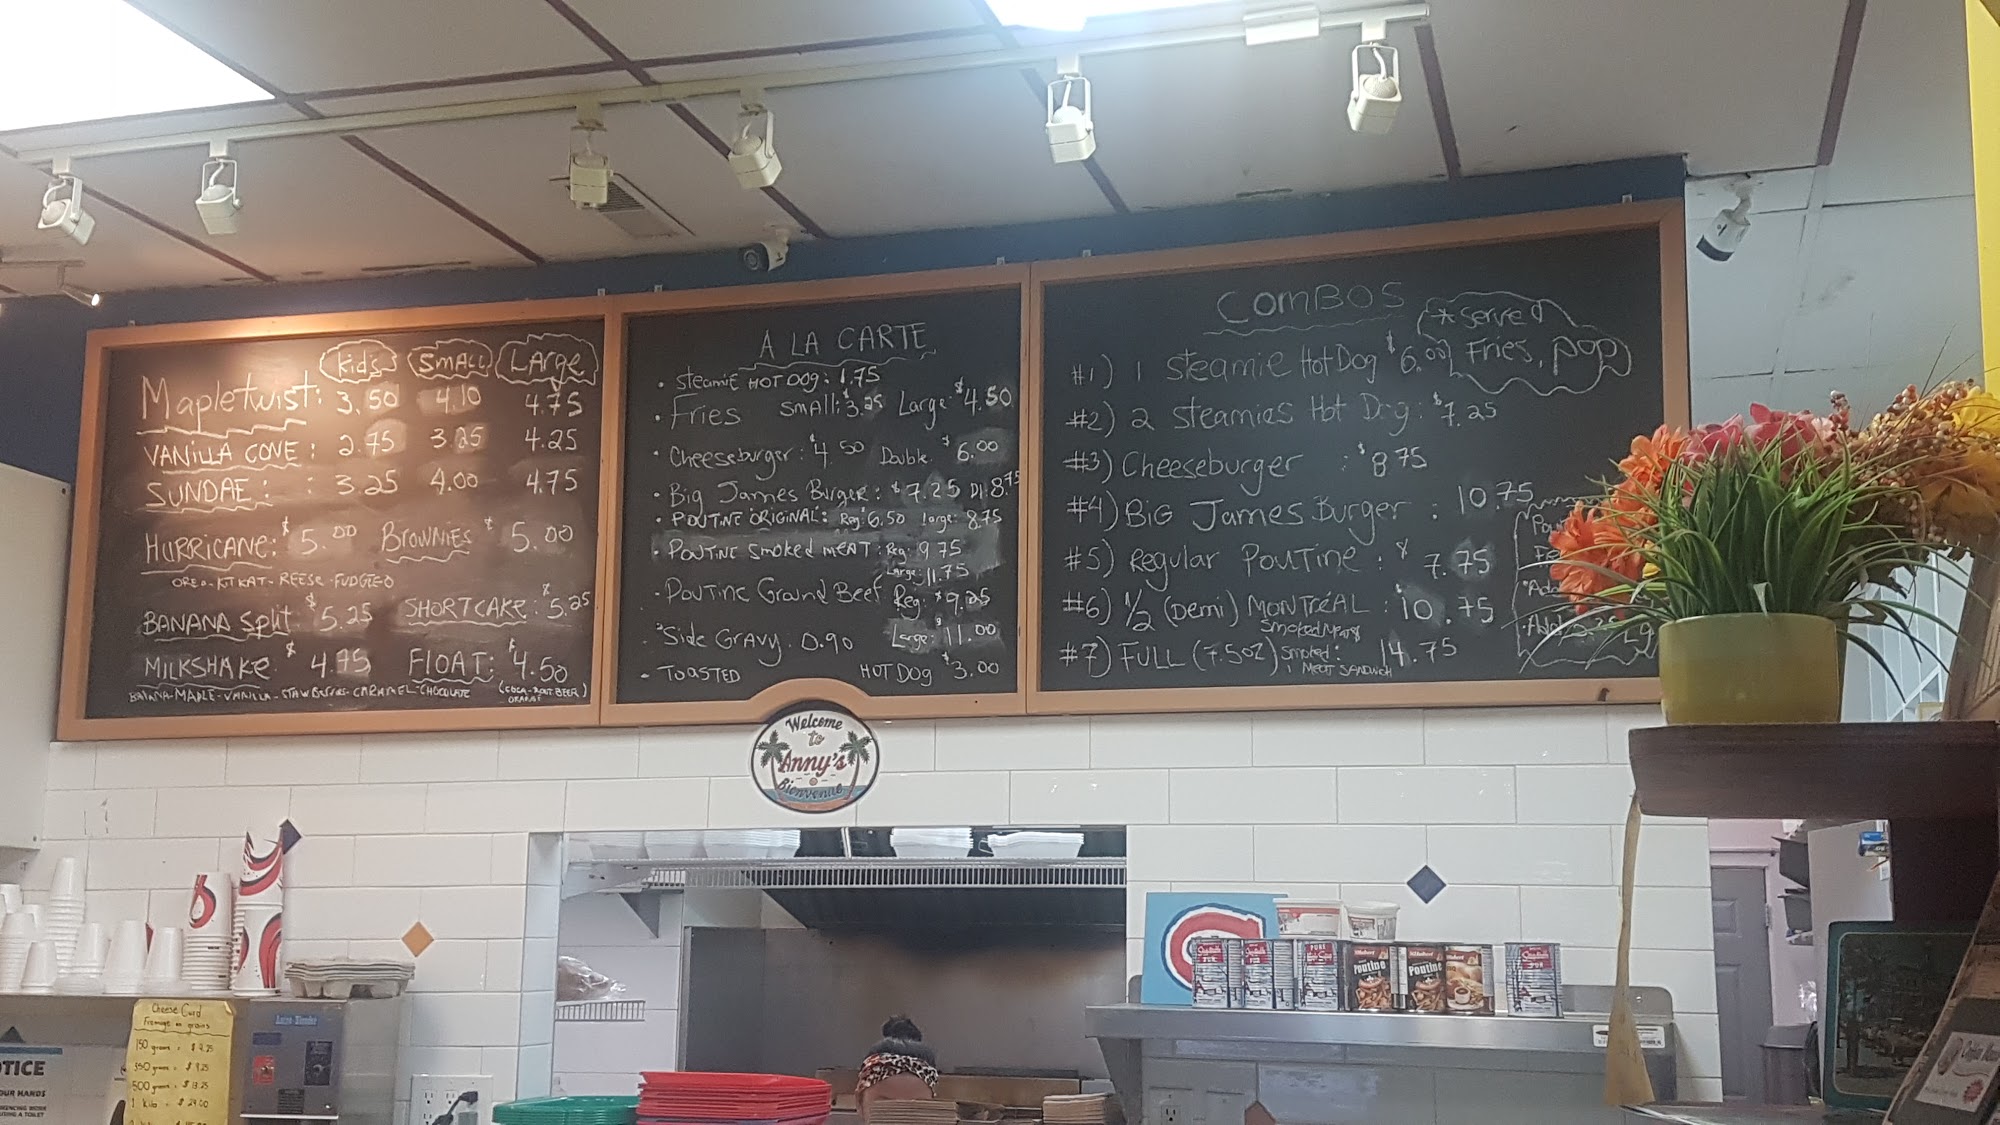 Kid's SMALL LARge
Mapletwist: 3.50 4.10 4.75
VANiLLA CONE : 2.75 3.25 4.25
SUNDAE : : 3.25 4.00 4.75
HURRICANE: $5.00 BROWNIES $5.00
OREO-KITKAT-REESE-FUDGEO
BANANA Split $5.25 SHORTCAKE: $5.25
MILKSHAKE $4.75 FlOAT: $4.50
BANANA-MAPLE-VANILLA- -CARAMEL-CHOCOLATE (COCA-ROOT BEER)
ORANGE
A LA CARTE
• STEAMIE HOT DOG: 1.75
• Fries SmAll: $3.25 Large: $4.50
• Cheeseburger: $4.50 Double $6.00
• Big James Burger: $7.25 Dl. 8.75
• POUTINE ORIGINAL: Reg: $6.50 Large: 8.75
• POUTINE Smoked MEAT: Reg: 9.75
Large: 11.75
• POUTINE Ground Beef Reg: $9.25
Large: $11.00
• Side GRAVY. 0.90
• TOASTED HOT DOG $3.00
COMBOS
*Served
Fries, pop
#1) 1 Steamie Hot Dog $6.00
#2) 2 Steamies Hot Dog: $7.25
#3) Cheeseburger : $8.75
#4) BIG James Burger : 10.75
#5) Regular Poutine : $7.75
#6) 1/2 (Demi) MONTRéAL : $10.75
Smoked Meat
#7) FULL (7.5oz) Smoked: 14.75
1 MEAT SANDWICH
Welcome
to
Anny's
Bienvenue
Cheese Curd
Fromage en grains
150 grams =
350 grams = $ 9.25
500 grams = $ 13.25
1 kilo = $ 24.00
OTICE
OUR HANDS
Poutine
Poutine